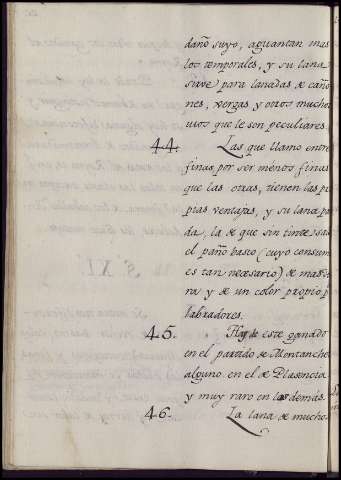 daño suyo, aguantan mas
los temporales, y su lana
sirve para lanadas de caño
nes, vergas y otros mucho
usos que le son peculiares.
44. Las que llamo entre
finas por ser ménos finas
que las otras, tienen las pro
pias ventajas, y su lana pa
da, la de que sin tinte sas
el paño basto (cuyo consum
es tan necesario) de mas du
ra y de un color propio p.ª
labradores.
45. Hay de este ganado
en el partido de Montanche
alguno en el de Plasencia
y muy raro en las demás.
46. La lana de mucho